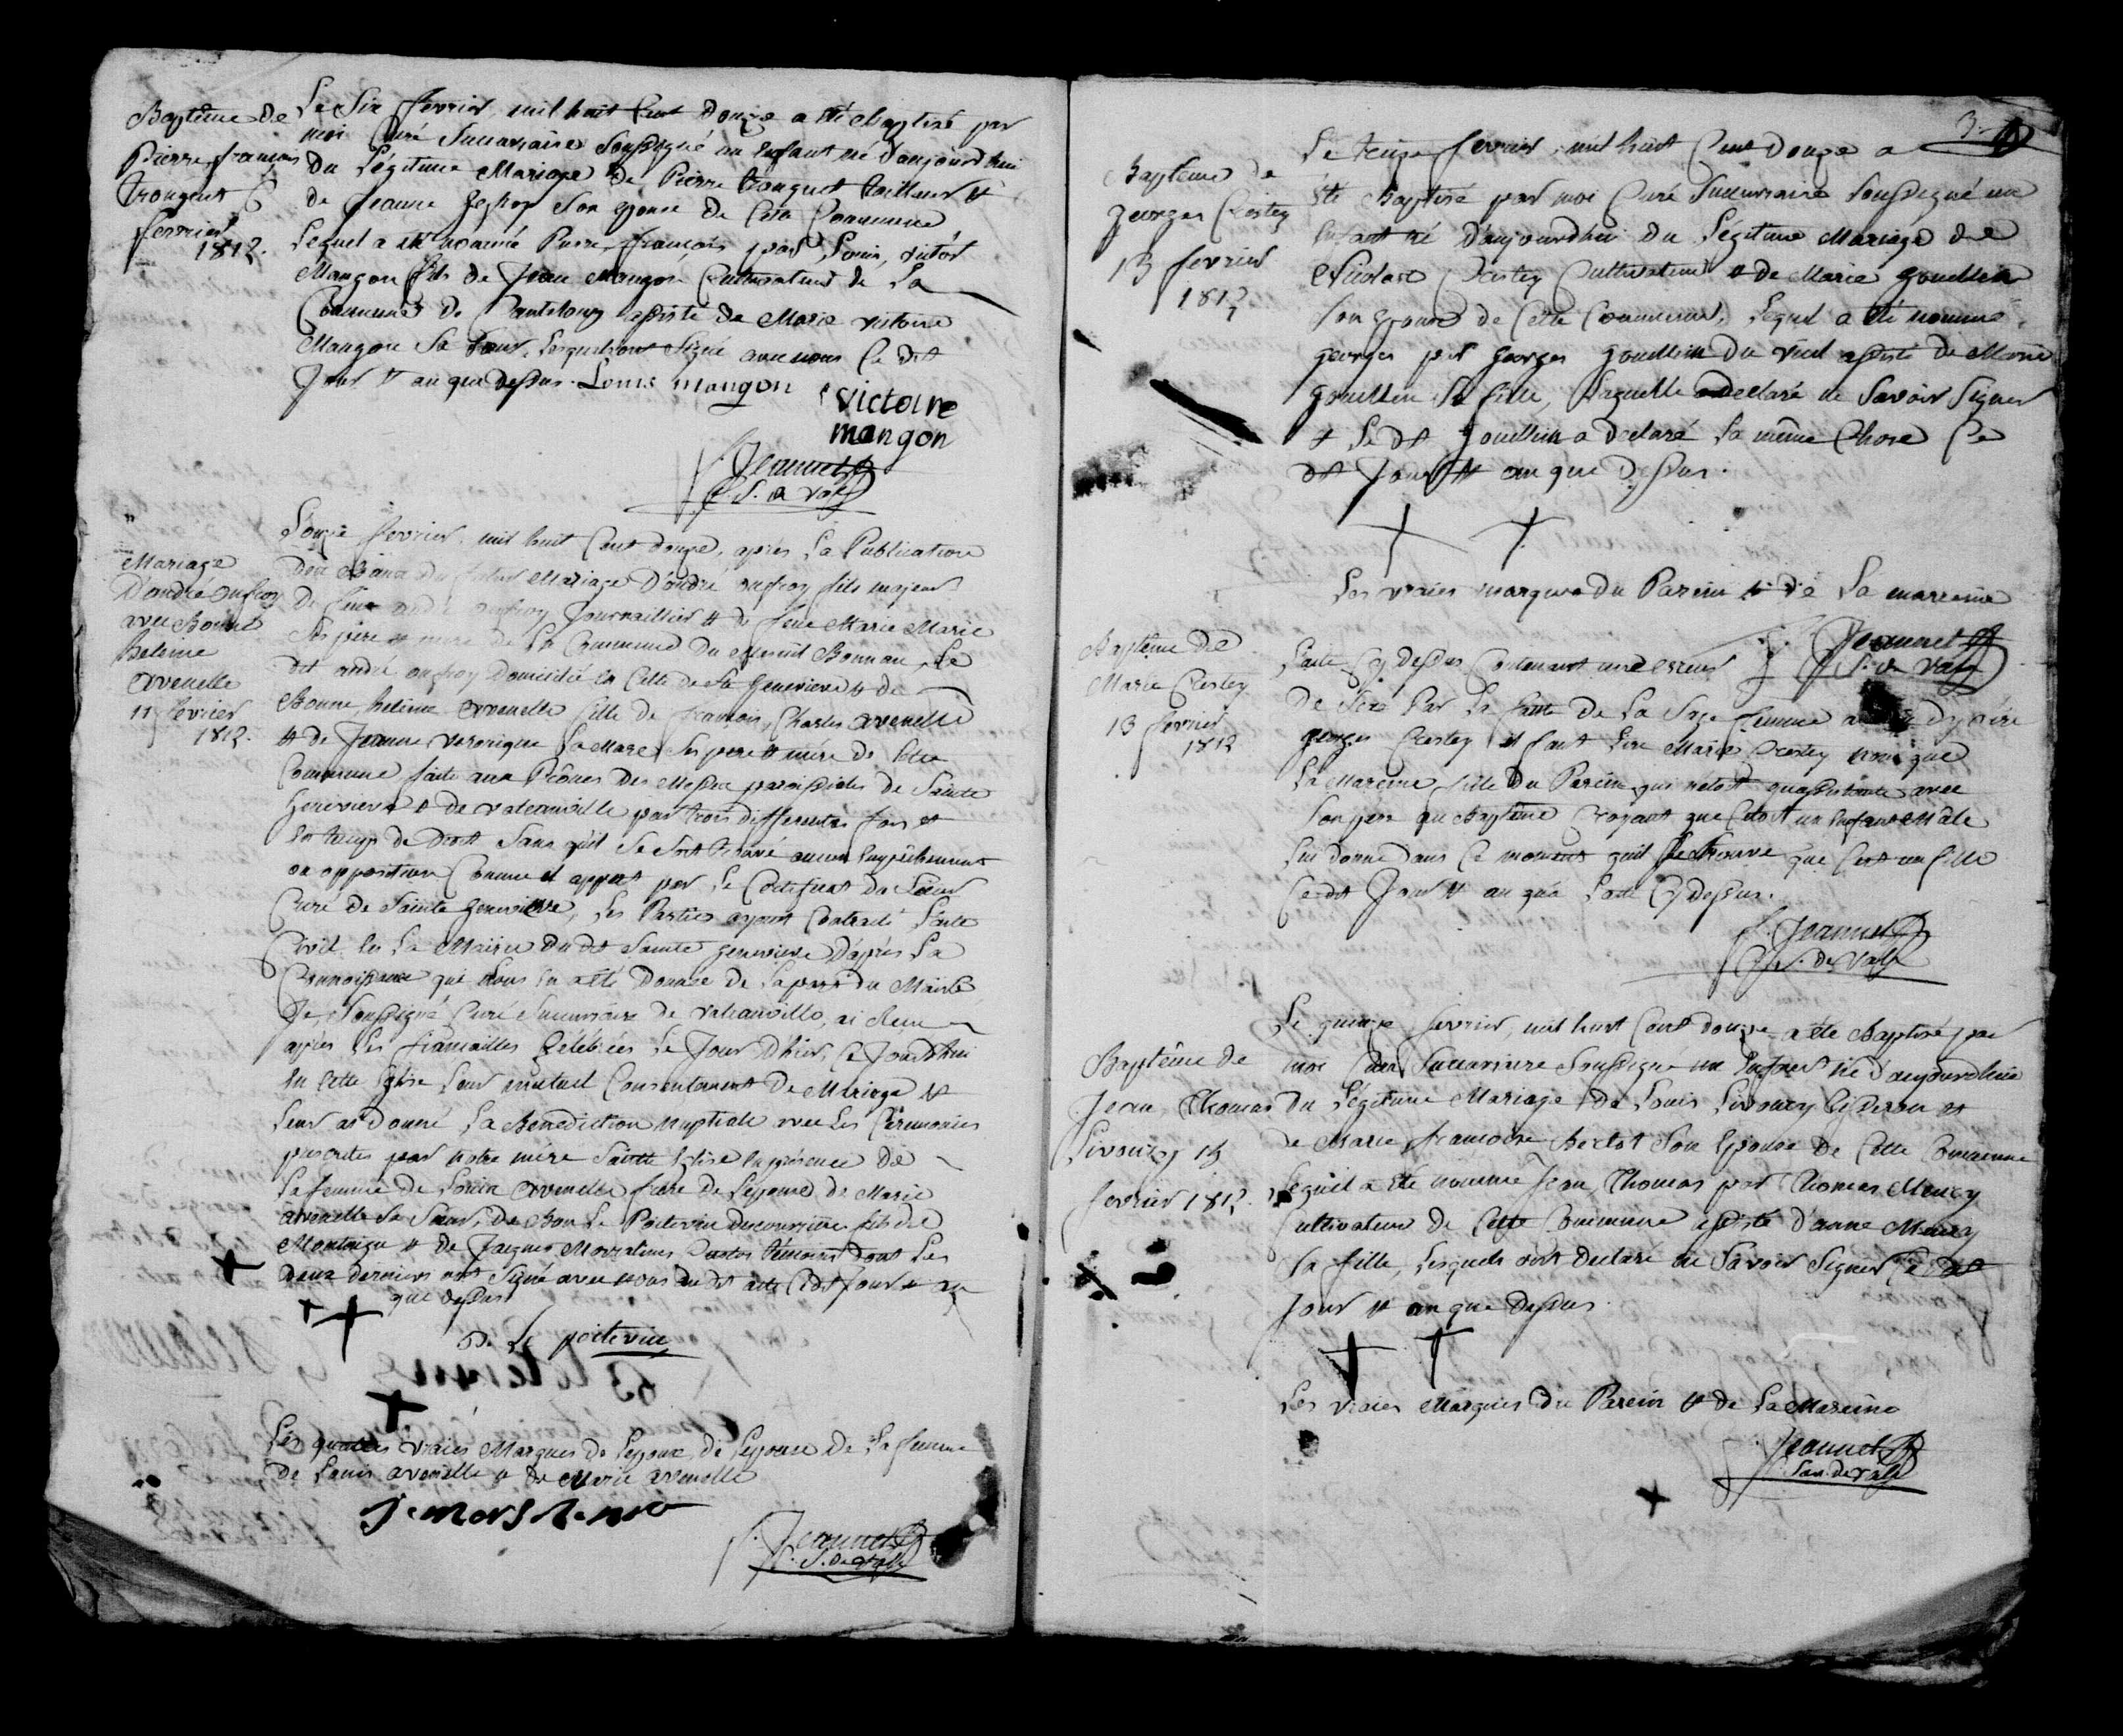 Baptême de
Pierre françois
Trouguet 6
fevrier
1812.
Le Six fevrier, mil huit Cent Douze a été Baptisé par
moi Curé Succursaire Soussigné un Enfant né d'aujourdhui
du Légitime Mariage de Pierre Trouguet tailleur et
de Jeanne son Epouse de Cette Commune
Lequel a été nommé Pierre, françois par Louis, victor
Mangon fils de Jean Mangon Cultivateur de La
Commune de Canteloup assisté de Marie victoire
Mangon Sa Soeur, Lesquels ont Signé avec nous Ce dit
Jour et an que dessus. Louis mangon
victoire
mangon
Jeannet
C. S. de valf
Mariage
D'andré onfroy
avec Bonne
helenne
avenelle
11 fevrier
1812.
L'onze fevrier mil huit Cent douze, après La Publication
des Bans du futur Mariage D'andré onfroy fils majeur
de feu andré onfroy Journaillier et de feue Marie Marie
Ses père et mere de La Commune du Mesnil Bonnan, Le
dit andré onfroy Domicilié en Celle de Ste Genevieve et de
Bonne, helenne avenelle fille de francois, Charles avenelle
et de Jeanne veronique La Mare Ses pere et mere de Cette
Commune faite aux Prônes des Messes paroissiales de Sainte
Genevieve et de valcanville par trois differentes fois et
en temps de Droit Sans qu'il Se Soit trouvé aucun Empêchement
ou opposition Comme il appert par Le Certificat du Sieur
Curé de Sainte Genevieve, Les Parties ayant Contracté L'acte
Civil en La Mairie du dit Sainte Genevieve D'après La
Connoissance que Nous en a été Donnée de La part du Maire
Je, Soussigné Curé Succursaire de valcanville, ai Recu
après Les fiancailles Célébrées Le Jour D'hier, Ce Jourdhui
en Cette Eglise Leur mutuel Consentement de Mariage et
Leur ai donné La Bénédiction nuptiale avec Les Cérémonies
prescrites par notre mère Sainte Eglise En présence de
La femme de Louis avenelle frere de L'epouse, de Marie
avenelle Sa Soeur, De Bon Le Poitevin fils de
Montaigu et de Jacques Custos témoins dont Les
Deux derniers ont Signé avec nous du dit acte Ce dit Jour et an
que dessus
B. Le poitevin
Les quatres vraies Marques de L'epoux, de L'epouse de La femme
de Louis avenelle et de Marie avenelle
Jeannet
C. S. de valf
3
Baptême de
georges Crestey
13 fevrier
1812
Le treize fevrier, mil huit Cent douze a
été Baptisé par moi Curé Succursaire Soussigné un
Enfant né D'aujourdhui du Légitime Mariage de
Nicolas Crestey Cultivateur et de Marie gouellin
Son Epouse de Cette Commune, Lequel a été nommé
georges par georges gouellin du assisté de Marie
gouellin Sa fille, Laquelle a declaré ne Savoir Signer
et Le dit gouellin a declaré La même Chose Ce
dit Jour et an que dessus.
Les vraies marques du Parein et de La mareinne
Jeannet
C. S. de valf
Baptême de
Marie Crestey
13 fevrier
1812
L'acte Cy dessus Contenant une erreur
de Sexe Par La faute de La Sage femme
georges Crestey il faut Lire Marie Crestey nom que
La Mareine fille du Parein qui avec
Son pere au Baptême Croyant que C'etoit un Enfant Mâle
Lui donne Dans Ce moment qu'il Se trouve que C'est une fille
Ce dit Jour et an que L'acte Cy dessus.
Jeannet
C. S. de valf
Baptême de
Jean, Thomas
Livoury 15
fevrier 1812.
Le quinze fevrier, mil huit Cent douze a été Baptisé par
moi Curé Succursaire Soussigné un Enfant né d'aujourdhui
du Légitime Mariage de Louis Livoury et
de Marie francoise Bertot Son Epouse de Cette Commune
Lequel a été nommé Jean, Thomas par Thomas Mency
Cultivateur de Cette Commune assisté d'anne Mency
Sa fille, Lesquels ont declaré ne Savoir Signer Ce dit
Jour et an que dessus.
Les vraies Marques du Parein et de La Mareine
Jeannet
San. de valf